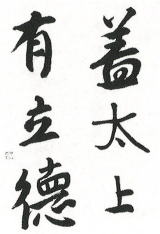 盖太上
有立德